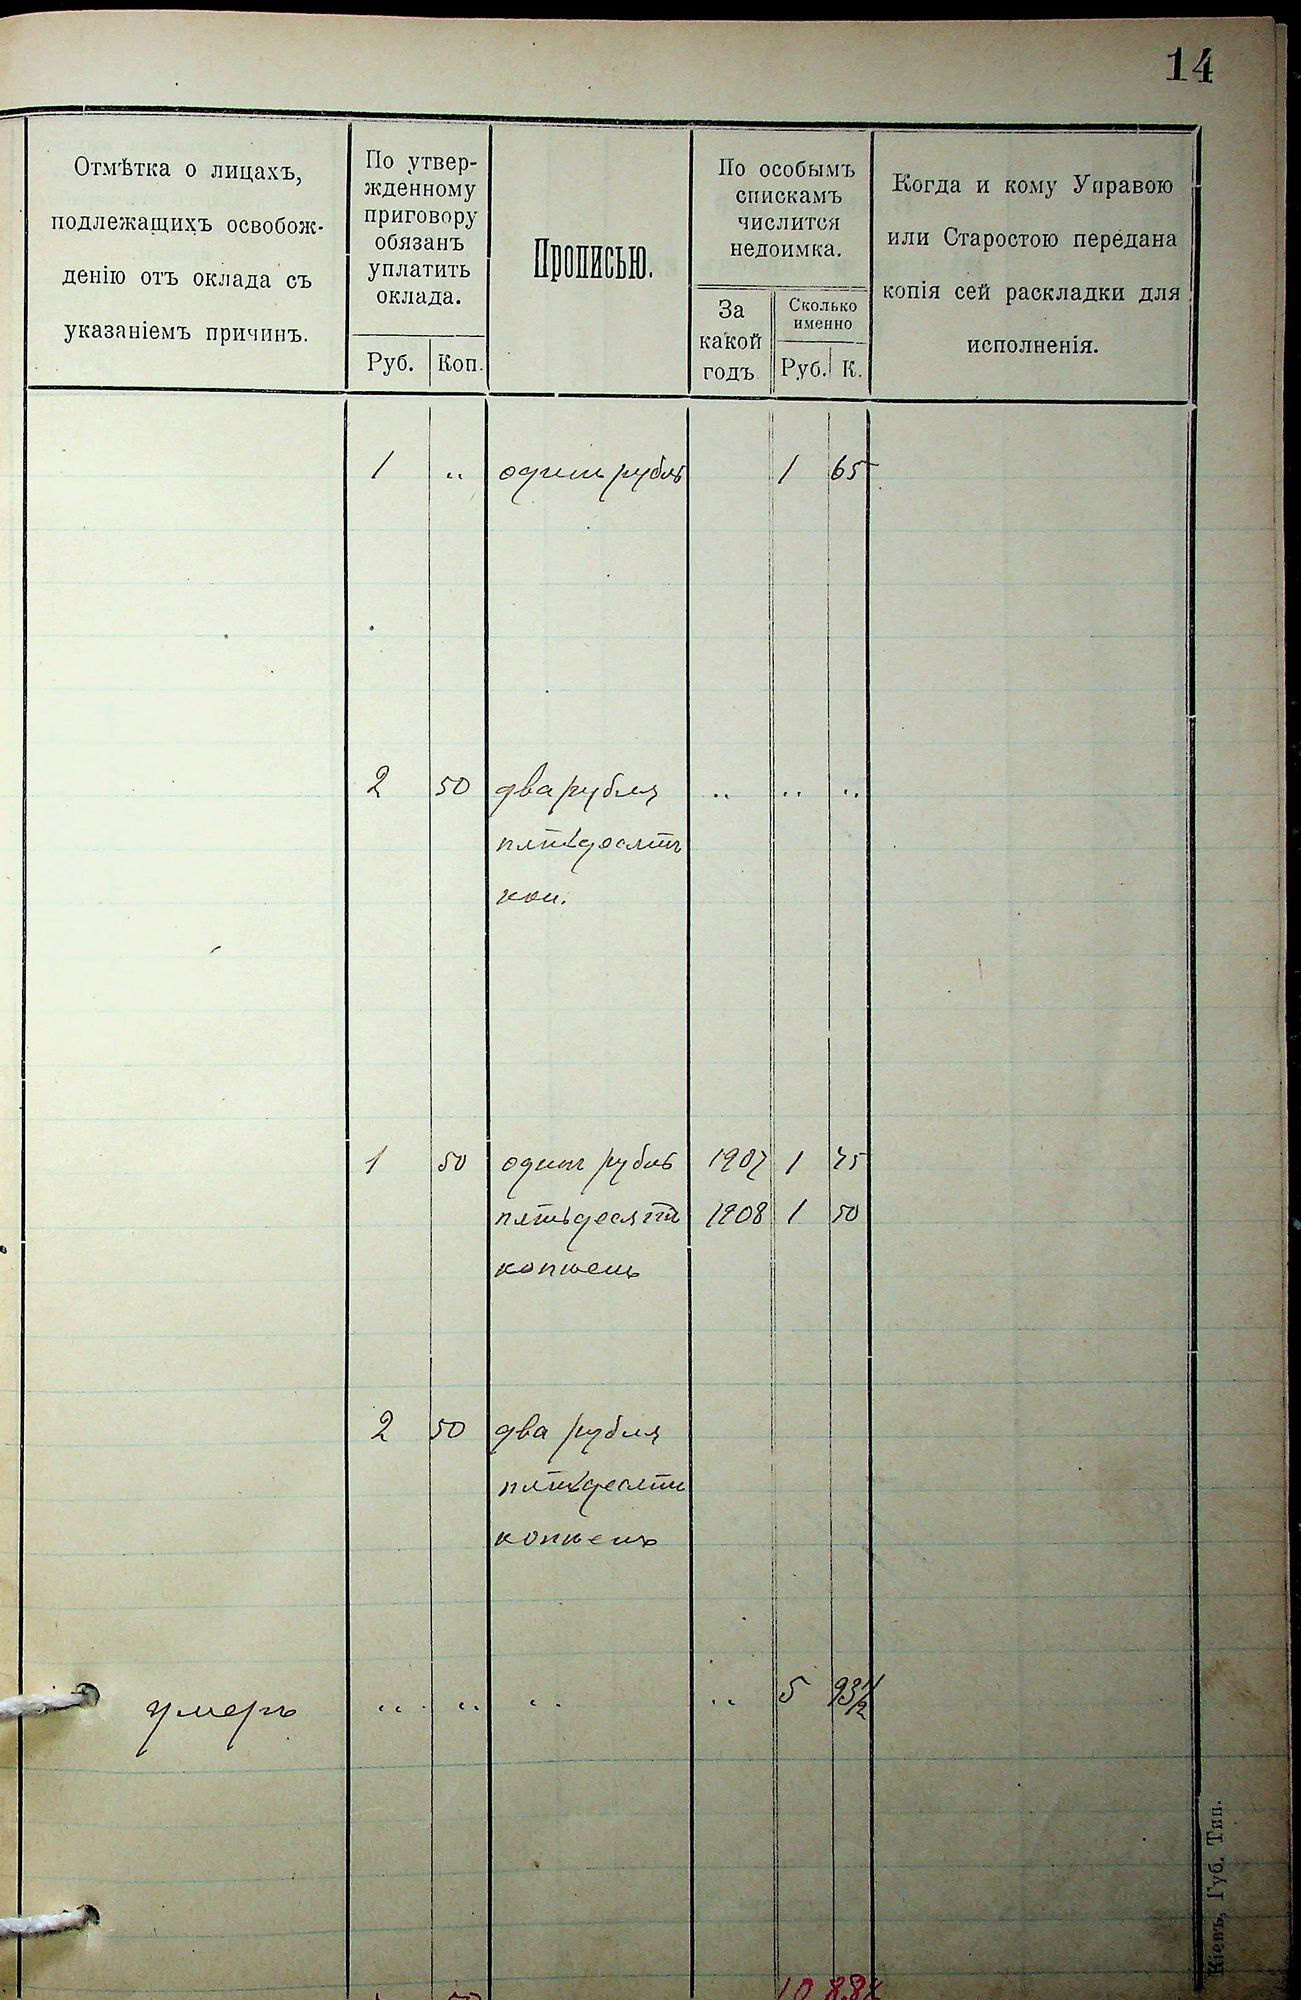 14
Отмѣтка о лицахъ,
подлежащихъ освобож-
денію отъ оклада съ
указаніемъ причинъ.
По утвер-
жденному
приговору
обязанъ
уплатить
оклада.
Руб. Коп.
Прописью.
По особымъ
спискамъ
числится
недоимка.
За
какой
годъ
Сколько
именно
Руб. К.
Когда и кому Управою
или Старостою передана
копія сей раскладки для
исполненія.
1 „ одинъ рубль 1 65
2 50 два рубля „ „ „
пятьдесятъ
коп.
1 50 одинъ рубль 1907 1 75
пятьдесятъ 1908 1 50
копѣекъ
2 50 два рубля
пятьдесятъ
копѣекъ
умеръ „ „ „ „ 5 93 1/2
Кіевъ, Губ. Тип.